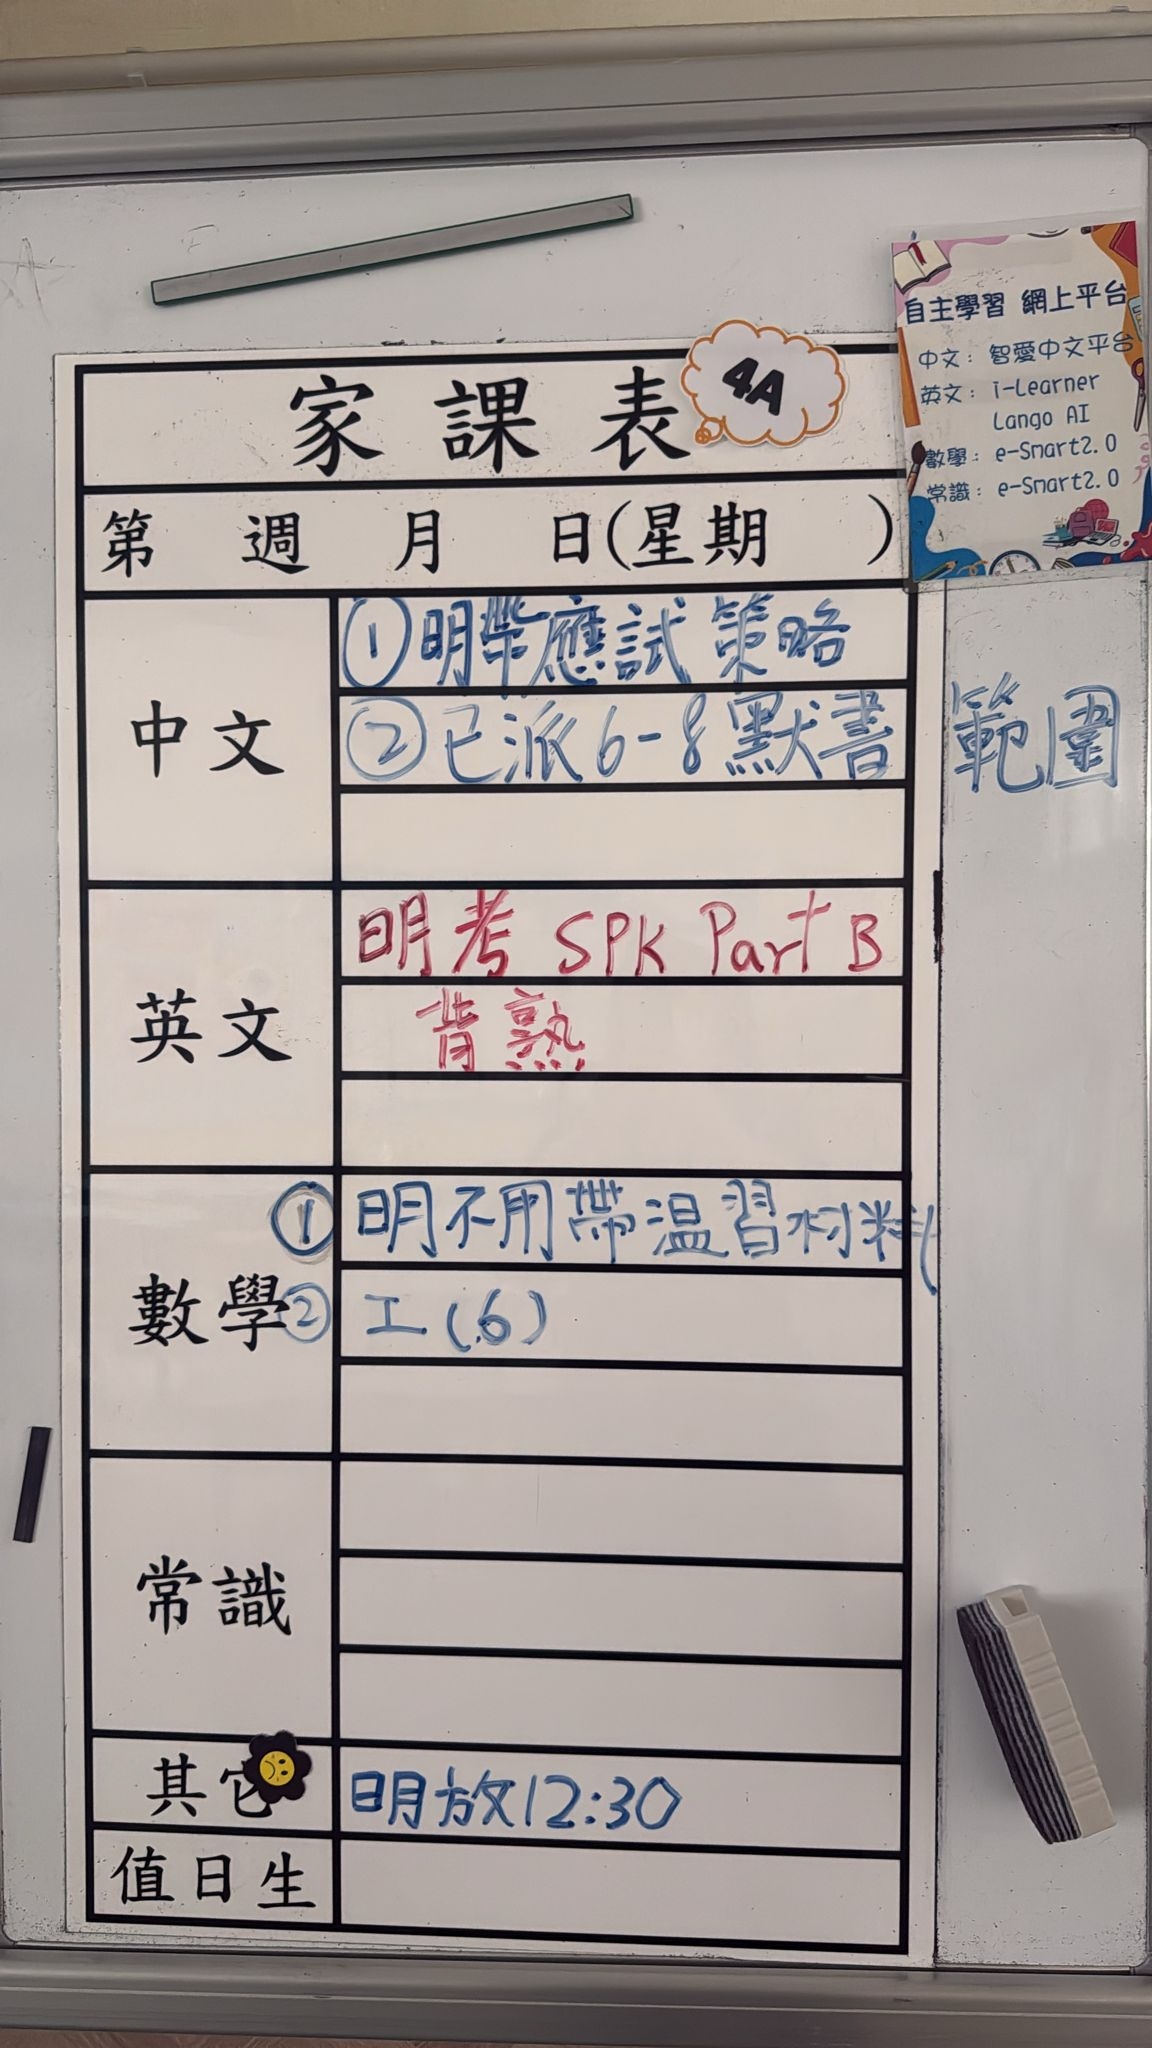 自主學習 網上平台
中文：智愛中文平台
英文：i-Learner
Lango AI
數學：e-Smart2.0
常識：e-Smart2.0
家課表 4A
第 週 月 日(星期 )
中文
①明帶應試策略
②已派6-8默書範圍
英文
明考 SPK Part B
背熟
數學
① 明不用帶温習材料
② 工(6)
常識
其它
明放12:30
值日生